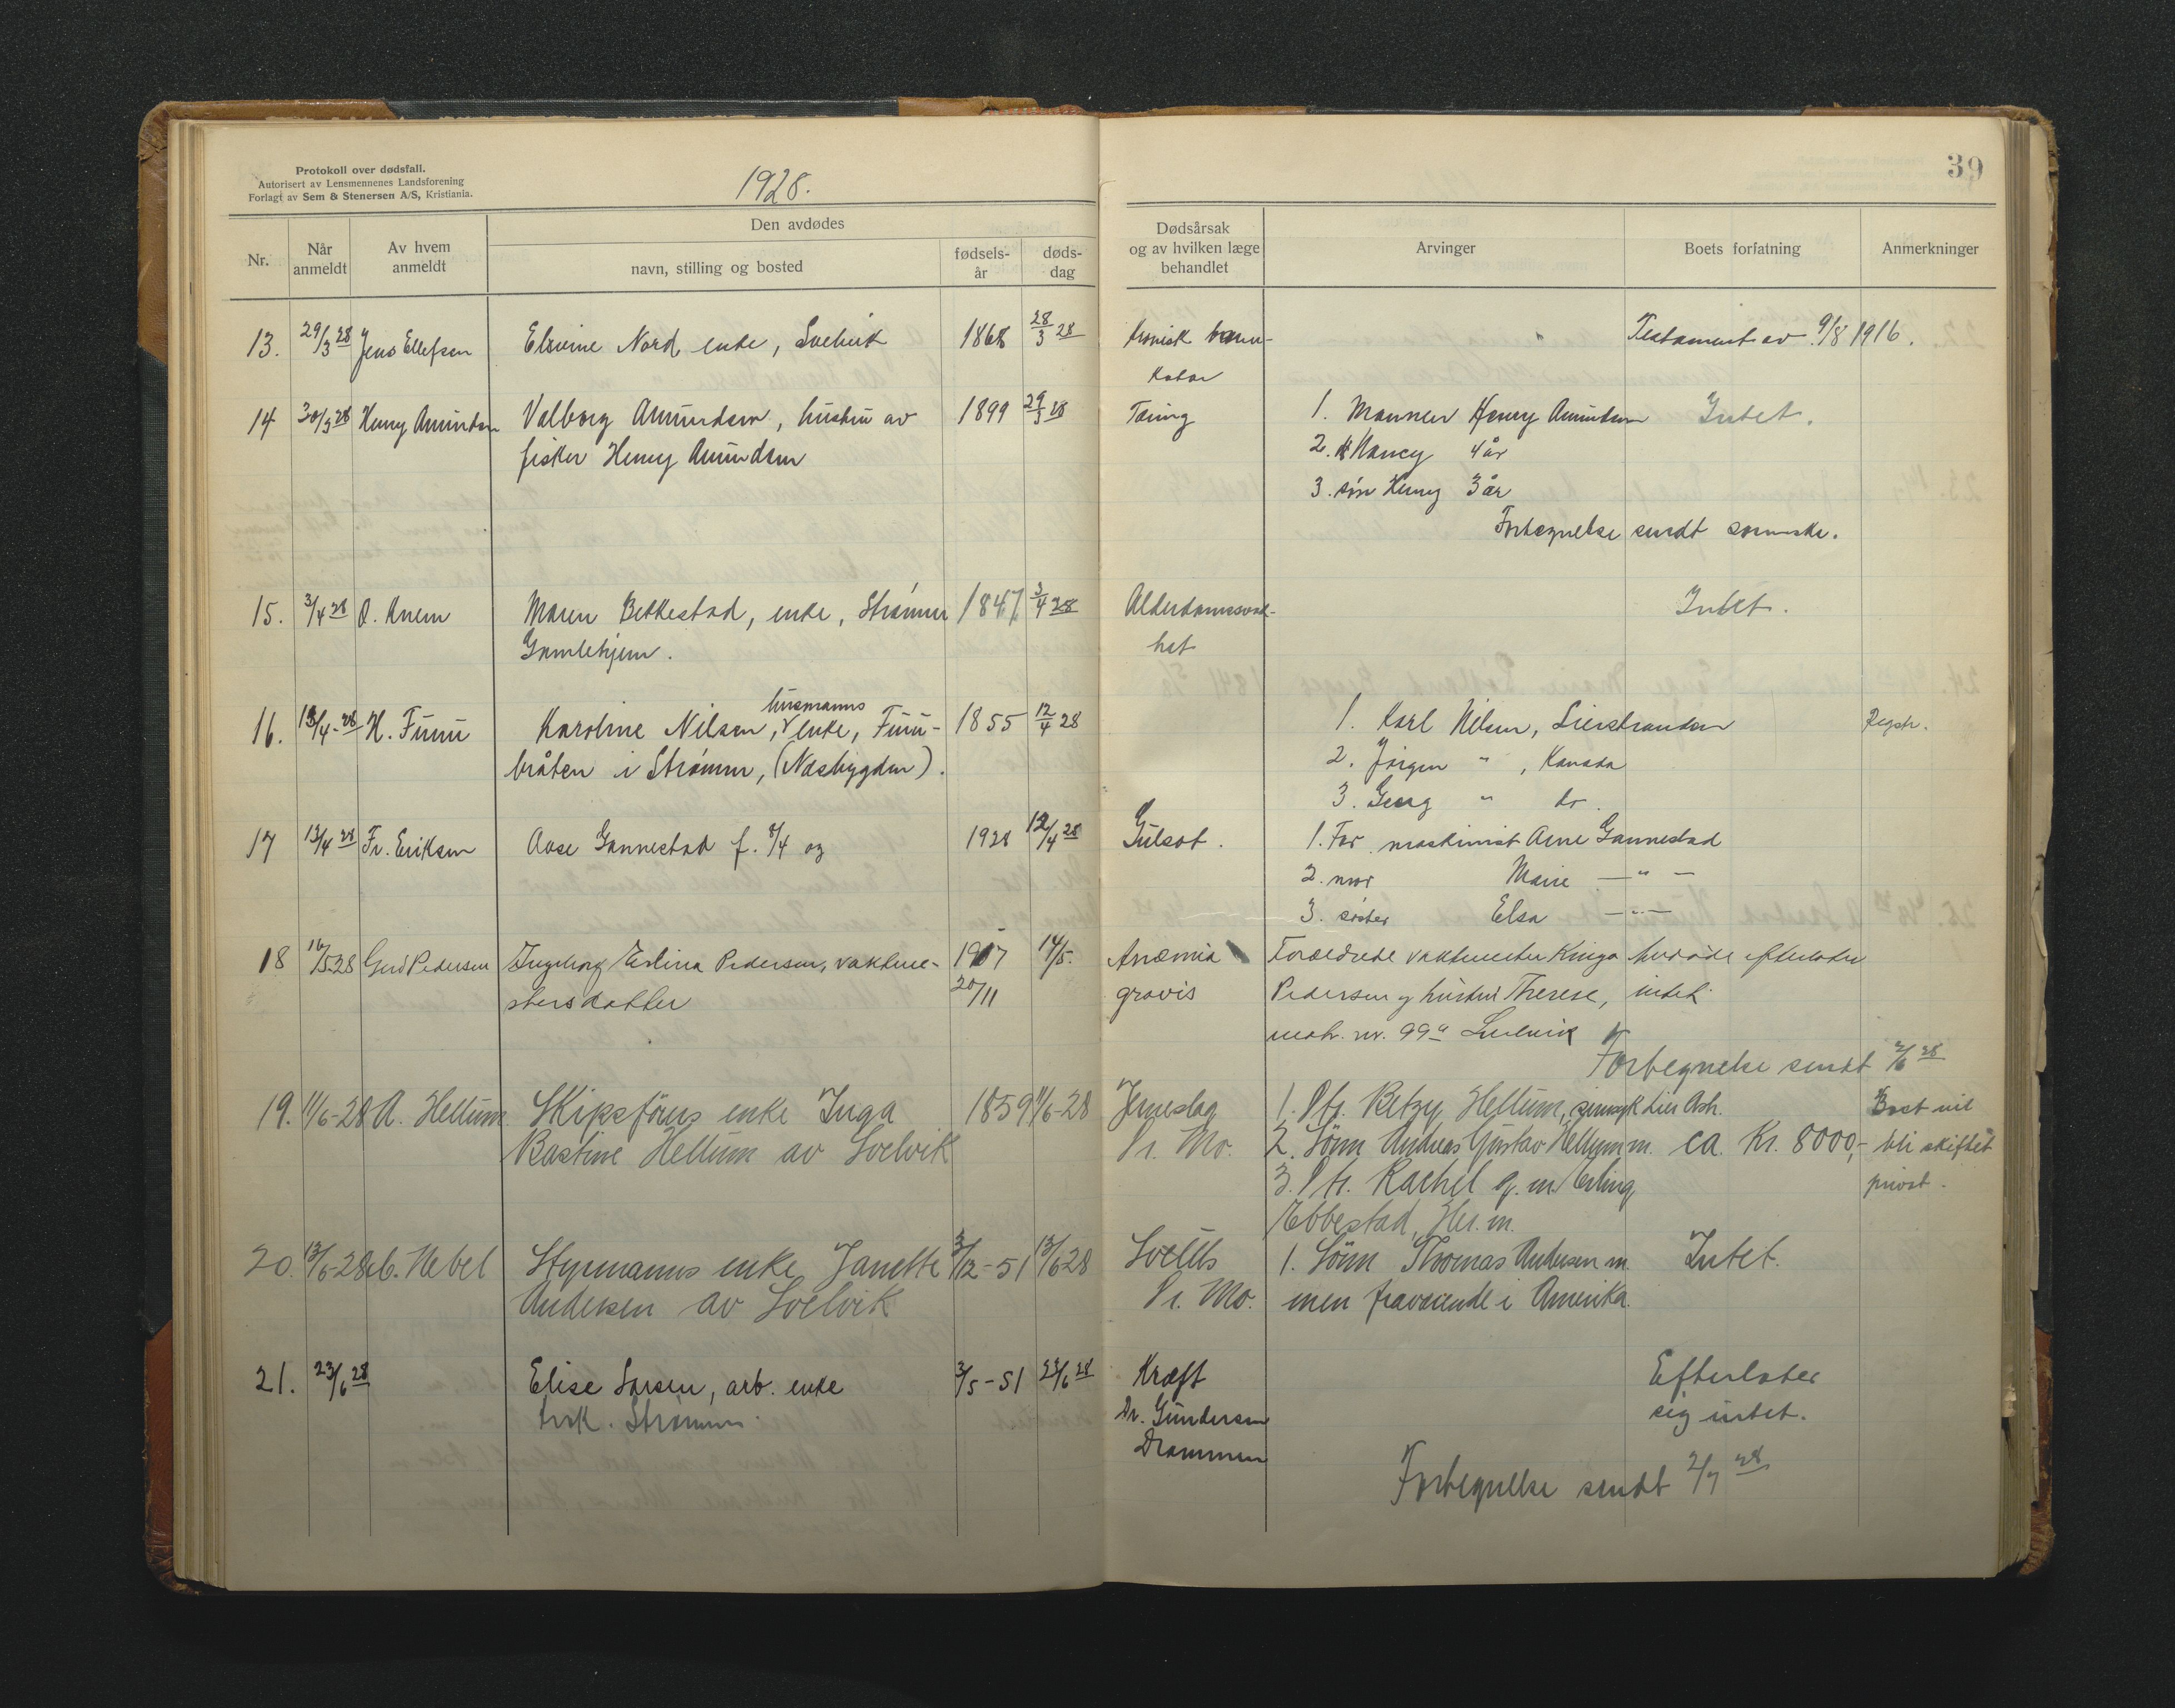 Protokoll over dødsfall.
Autorisert av Lensmennenes Landsforening
Forlagt av Sem & Stenersen A/S, Kristiania.
1928.
39
Nr.
Når anmeldt
Av hvem anmeldt
Den avdødes
navn, stilling og bosted
fødselsår
dødsdag
Dødsårsak og av hvilken læge behandlet
Arvinger
Boets forfatning
Anmerkninger
13. 29/3 28 Jens Ellefsen Elvine Nord, enke, Svelvik 1868 28/3 28 Kronisk Testament av 9/8 1916.
14 30/3 28 Henry Amundsen Valborg Amundsen, hustru av 1899 29/3 28 Tæring 1. Mannen Henry Amundsen Intet.
fisker Henry Amundsen 2. Nancy 4 år
3. søn Henry 3 år
Fortegnelse sendt
15. 3/4 28 O. Knem Maren Bekkestad, enke, Strømm 1847 3/4 28 Alderdomssvak- Intet.
Gamlehjem. het
husmanns
16. 13/4-28 H. Furu Karoline Nilsen, enke, Furu- 1855 12/4 28 1. Karl Nilsen, Lierstranden Regstr.
bråten i Strømm, (Nesbygden). 2. Jørgen " , Kanada
3. Georg " do.
17 13/4 28 Fr. Eriksen Aase Gannestad f. 8/4 og 1928 12/4 28 Gulsot. 1. Far maskinist Arne Gannestad
2. mor Marie - " -
3. søster Elsa - " -
18 16/5 28 Gerd Pedersen Ingeborg Erlina Pedersen, vaktme- 1907 14/5. Anæmia Forældrene vaktmester Ringo
stersdatter 20/11 gravis Pedersen og hustru Therese, intet
matr. nr. 99a Svelvik
Fortegnelse sendt 2/6 28
19. 11/6-28 A. Hellum Skipsförers enke Inga 1859 11/6-28 Jerneslag 1. Dtr. Betzy Hellum, sinnsyk Lier Asyl. Boet vil
Bastine Hellum av Svelvik Dr. Mo. 2. Sönn Andreas Gustav Hellum m. ca. Kr. 8000,- bli skiftet
3. Dtr. Rachel g. m. Erling privat.
Ebbestad, Her. m.
20. 13/6-28 Nebel Styrmanns enke Janette 3/12-51 13/6 28 1. Sönn Thomas Andersen m. Intet.
Andersen av Svelvik Dr. Mo. men fraværende i Amerika.
21. 23/6 28 Elise Larsen, arb. enke 3/5-51 22/6 28 Kræft Efterlater
Strømm. Dr. Gundersen sig intet.
Drammen
Fortegnelse sendt 2/7 28